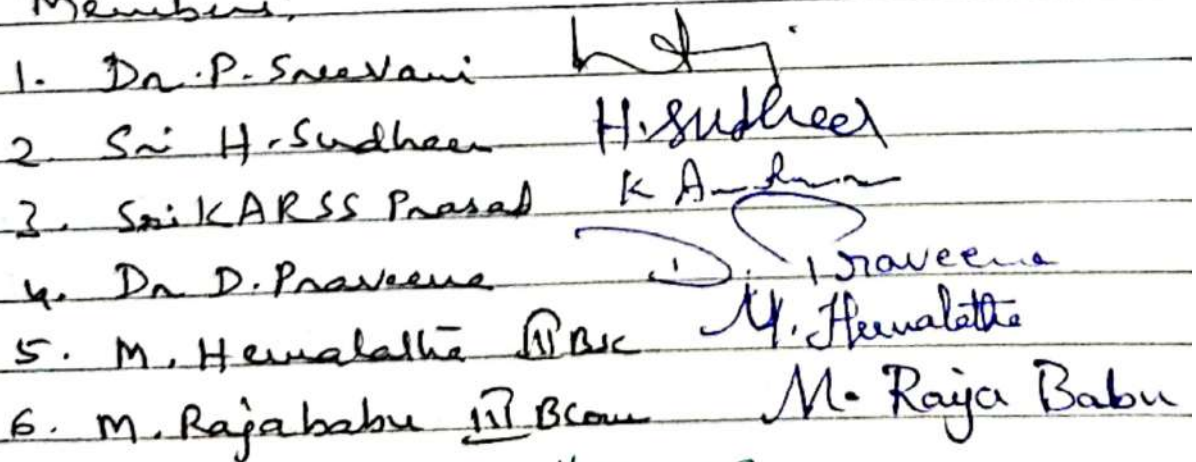 Members,
1. Dr. P. Sreevani
2. Sri H. Sudheer H. Sudheer
3. Sri KARSS Prasad K A
4. Dr D. Praveena D. Praveena
5. M. Hemalatha III BSc M. Hemalatha
6. M. Rajababu III BCom M. Raja Babu